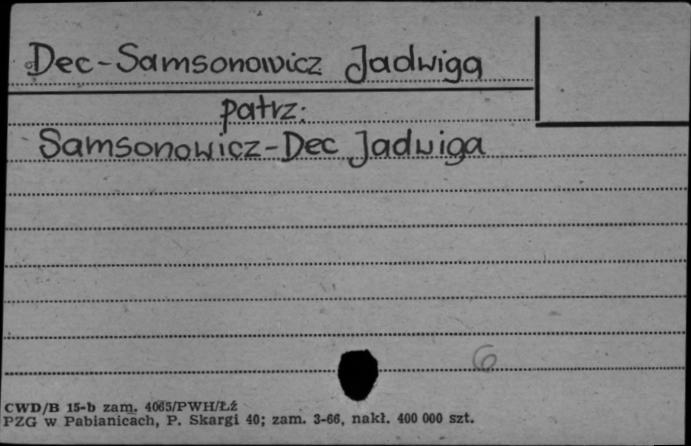 Dec-Samsonowicz Jadwiga
patrz:
Samsonowicz-Dec Jadwiga
6
CWD/B 15-b zam. 4065/PWH/Łź
PZG w Pabianicach, P. Skargi 40; zam. 3-66, nakł. 400 000 szt.